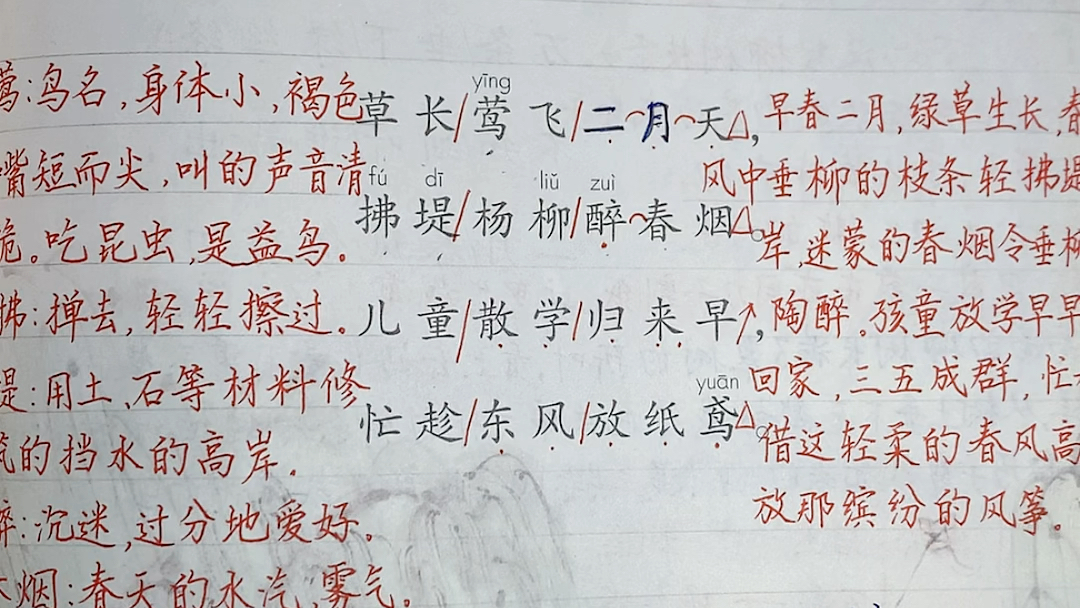 莺:鸟名,身体小,褐色
嘴短而尖,叫的声音清
脆。吃昆虫,是益鸟。
拂:掸去,轻轻擦过。
堤:用土、石等材料修
筑的挡水的高岸.
醉:沉迷,过分地爱好.
烟:春天的水汽,雾气.
yīng
草长/莺飞/二月天,
fú dī liǔ zuì
拂堤/杨柳/醉春烟。
儿童/散学/归来早↗,
yuān
忙趁/东风/放纸鸢。
早春二月,绿草生长,春
风中垂柳的枝条轻拂堤
岸,迷蒙的春烟令垂柳
陶醉。孩童放学早早
回家,三五成群,忙
借这轻柔的春风高
放那缤纷的风筝。